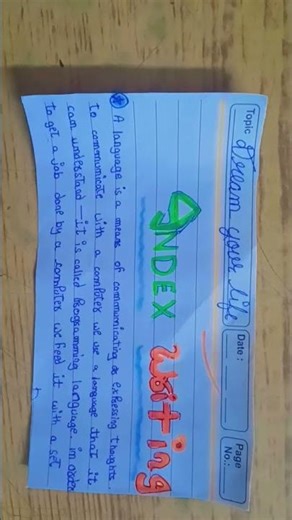 Topic Dream your life Date: Page No.:
INDEX writing
A language is a means of communicating or expressing thoughts.
To communicate with a computer we use a language that it
can understand — it is called Programming language. in order
to get a job done by a computer we feed it with a set